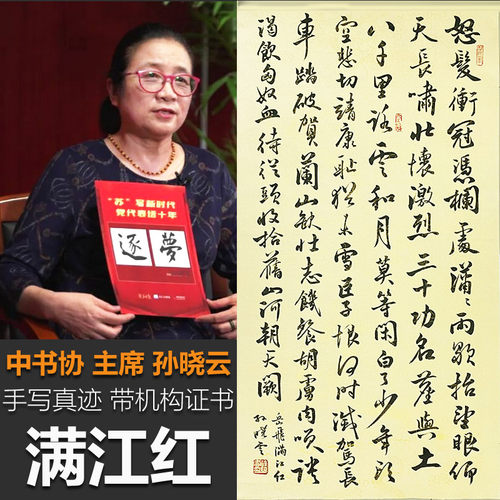 “苏”写新时代
党代表话十年
逐夢
中书协 主席 孙晓云
手写真迹 带机构证书
满江红
怒髮衝冠馮欄處瀟瀟雨歇抬望眼仰
天長嘯壯懷激烈三十功名塵與土
八千里路雲和月莫等閑白了少年頭
空悲切靖康恥猶未雪臣子恨何時滅駕長
車踏破賀蘭山缺壯志饑餐胡虜肉笑談
渴飲匈奴血待從頭收拾舊山河朝天闕
岳飛滿江红
孫曉雲